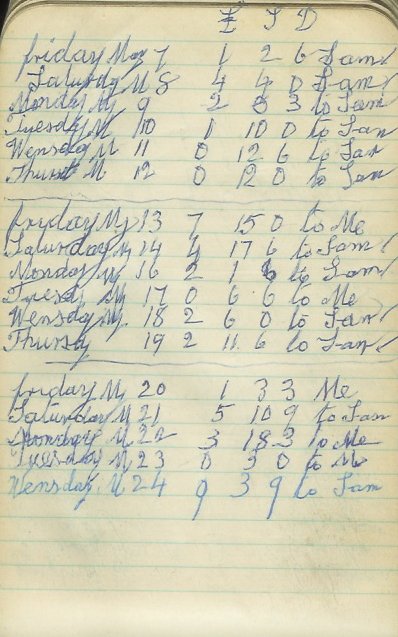 £ S D
friday May 7 1 2 6 Sam
Saturday M 8 4 4 0 Sam
Monday M 9 2 0 3 to Sam
Tuesday M 10 1 10 0 to Sam
Wensday M 11 0 12 6 to Sam
Thurst M 12 0 12 0 to Sam
friday M 13 7 15 0 to Me
Saturday M 14 4 17 6 to Sam
Monday M 16 2 1 6 to Sam
Tuesd M 17 0 6 6 to Me
Wensday M 18 2 6 0 to Sam
Thursy 19 2 11 6 to Sam
friday M 20 1 3 3 Me
Saturday M 21 5 10 9 to Sam
Monday M 22 3 18 3 to Me
Tuesday M 23 0 9 0 to M
Wensday M 24 9 3 9 to Sam